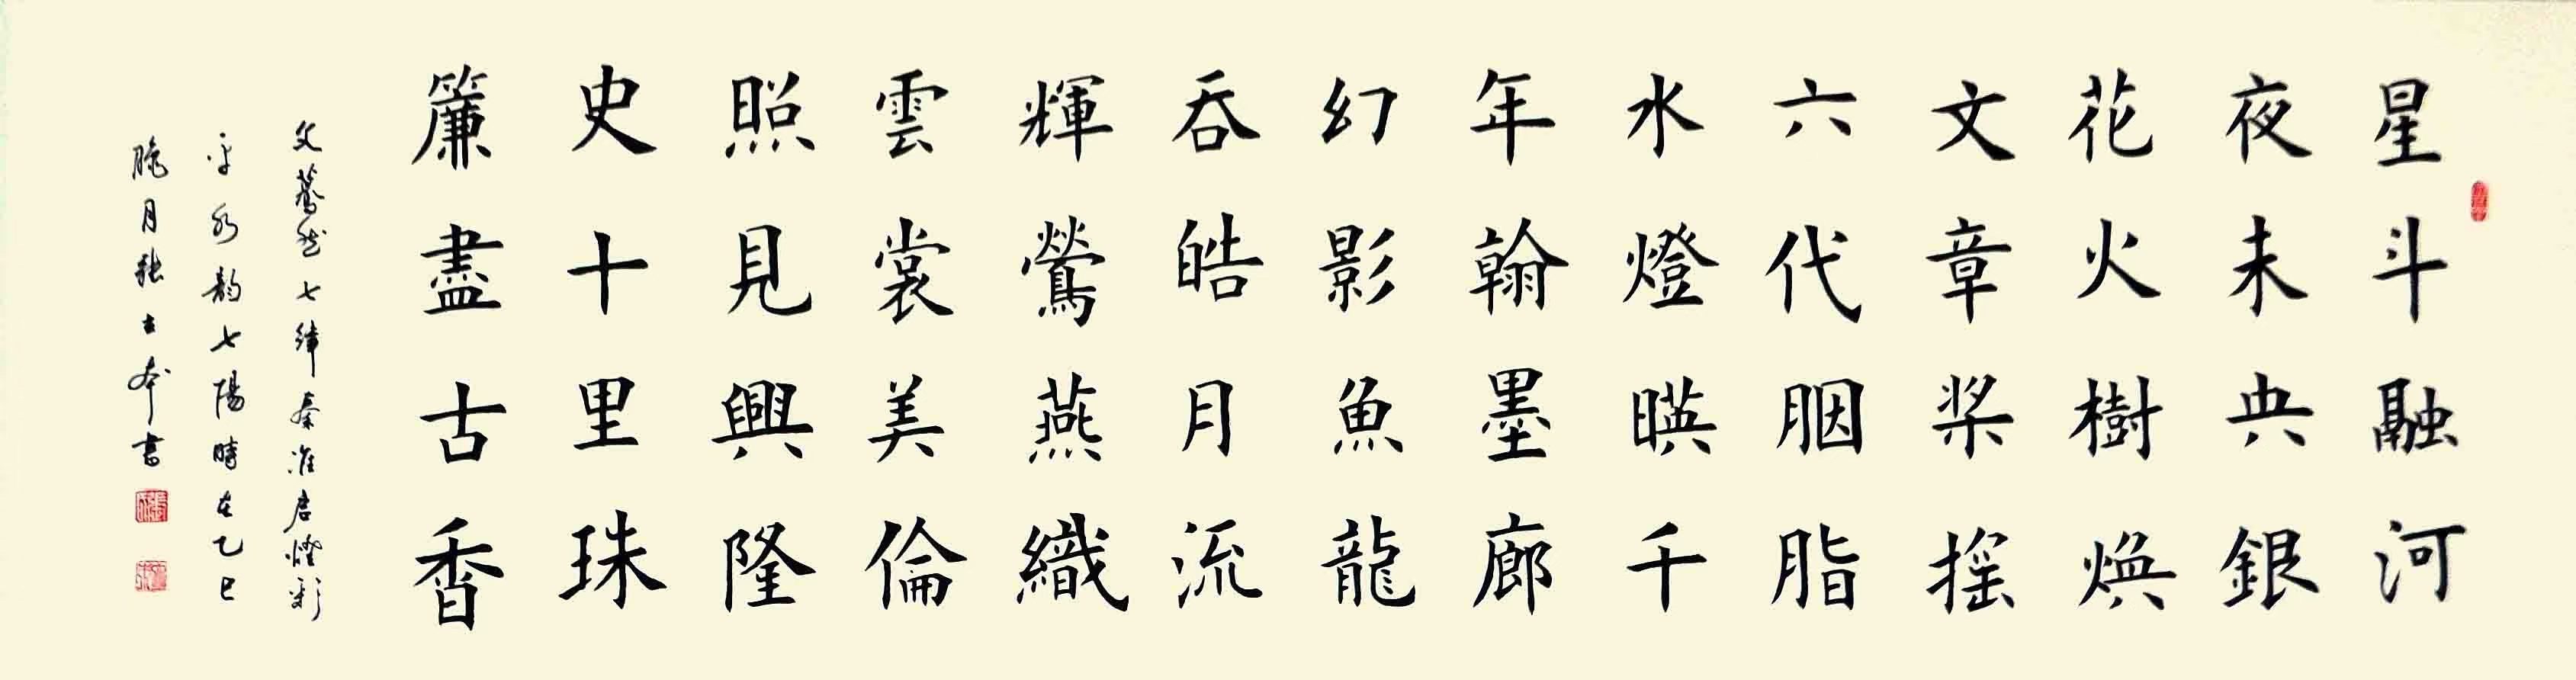 星斗融河
夜未央銀
花火樹煥
文章槳搖
六代胭脂
水燈暎千
年翰墨廊
幻影魚龍
吞皓月流
輝鶯燕織
雲裳美倫
照見興隆
史十里珠
簾盡古香
文驀然七律秦淮启燈彩
平水韵七陽時在乙巳
臘月張士本書